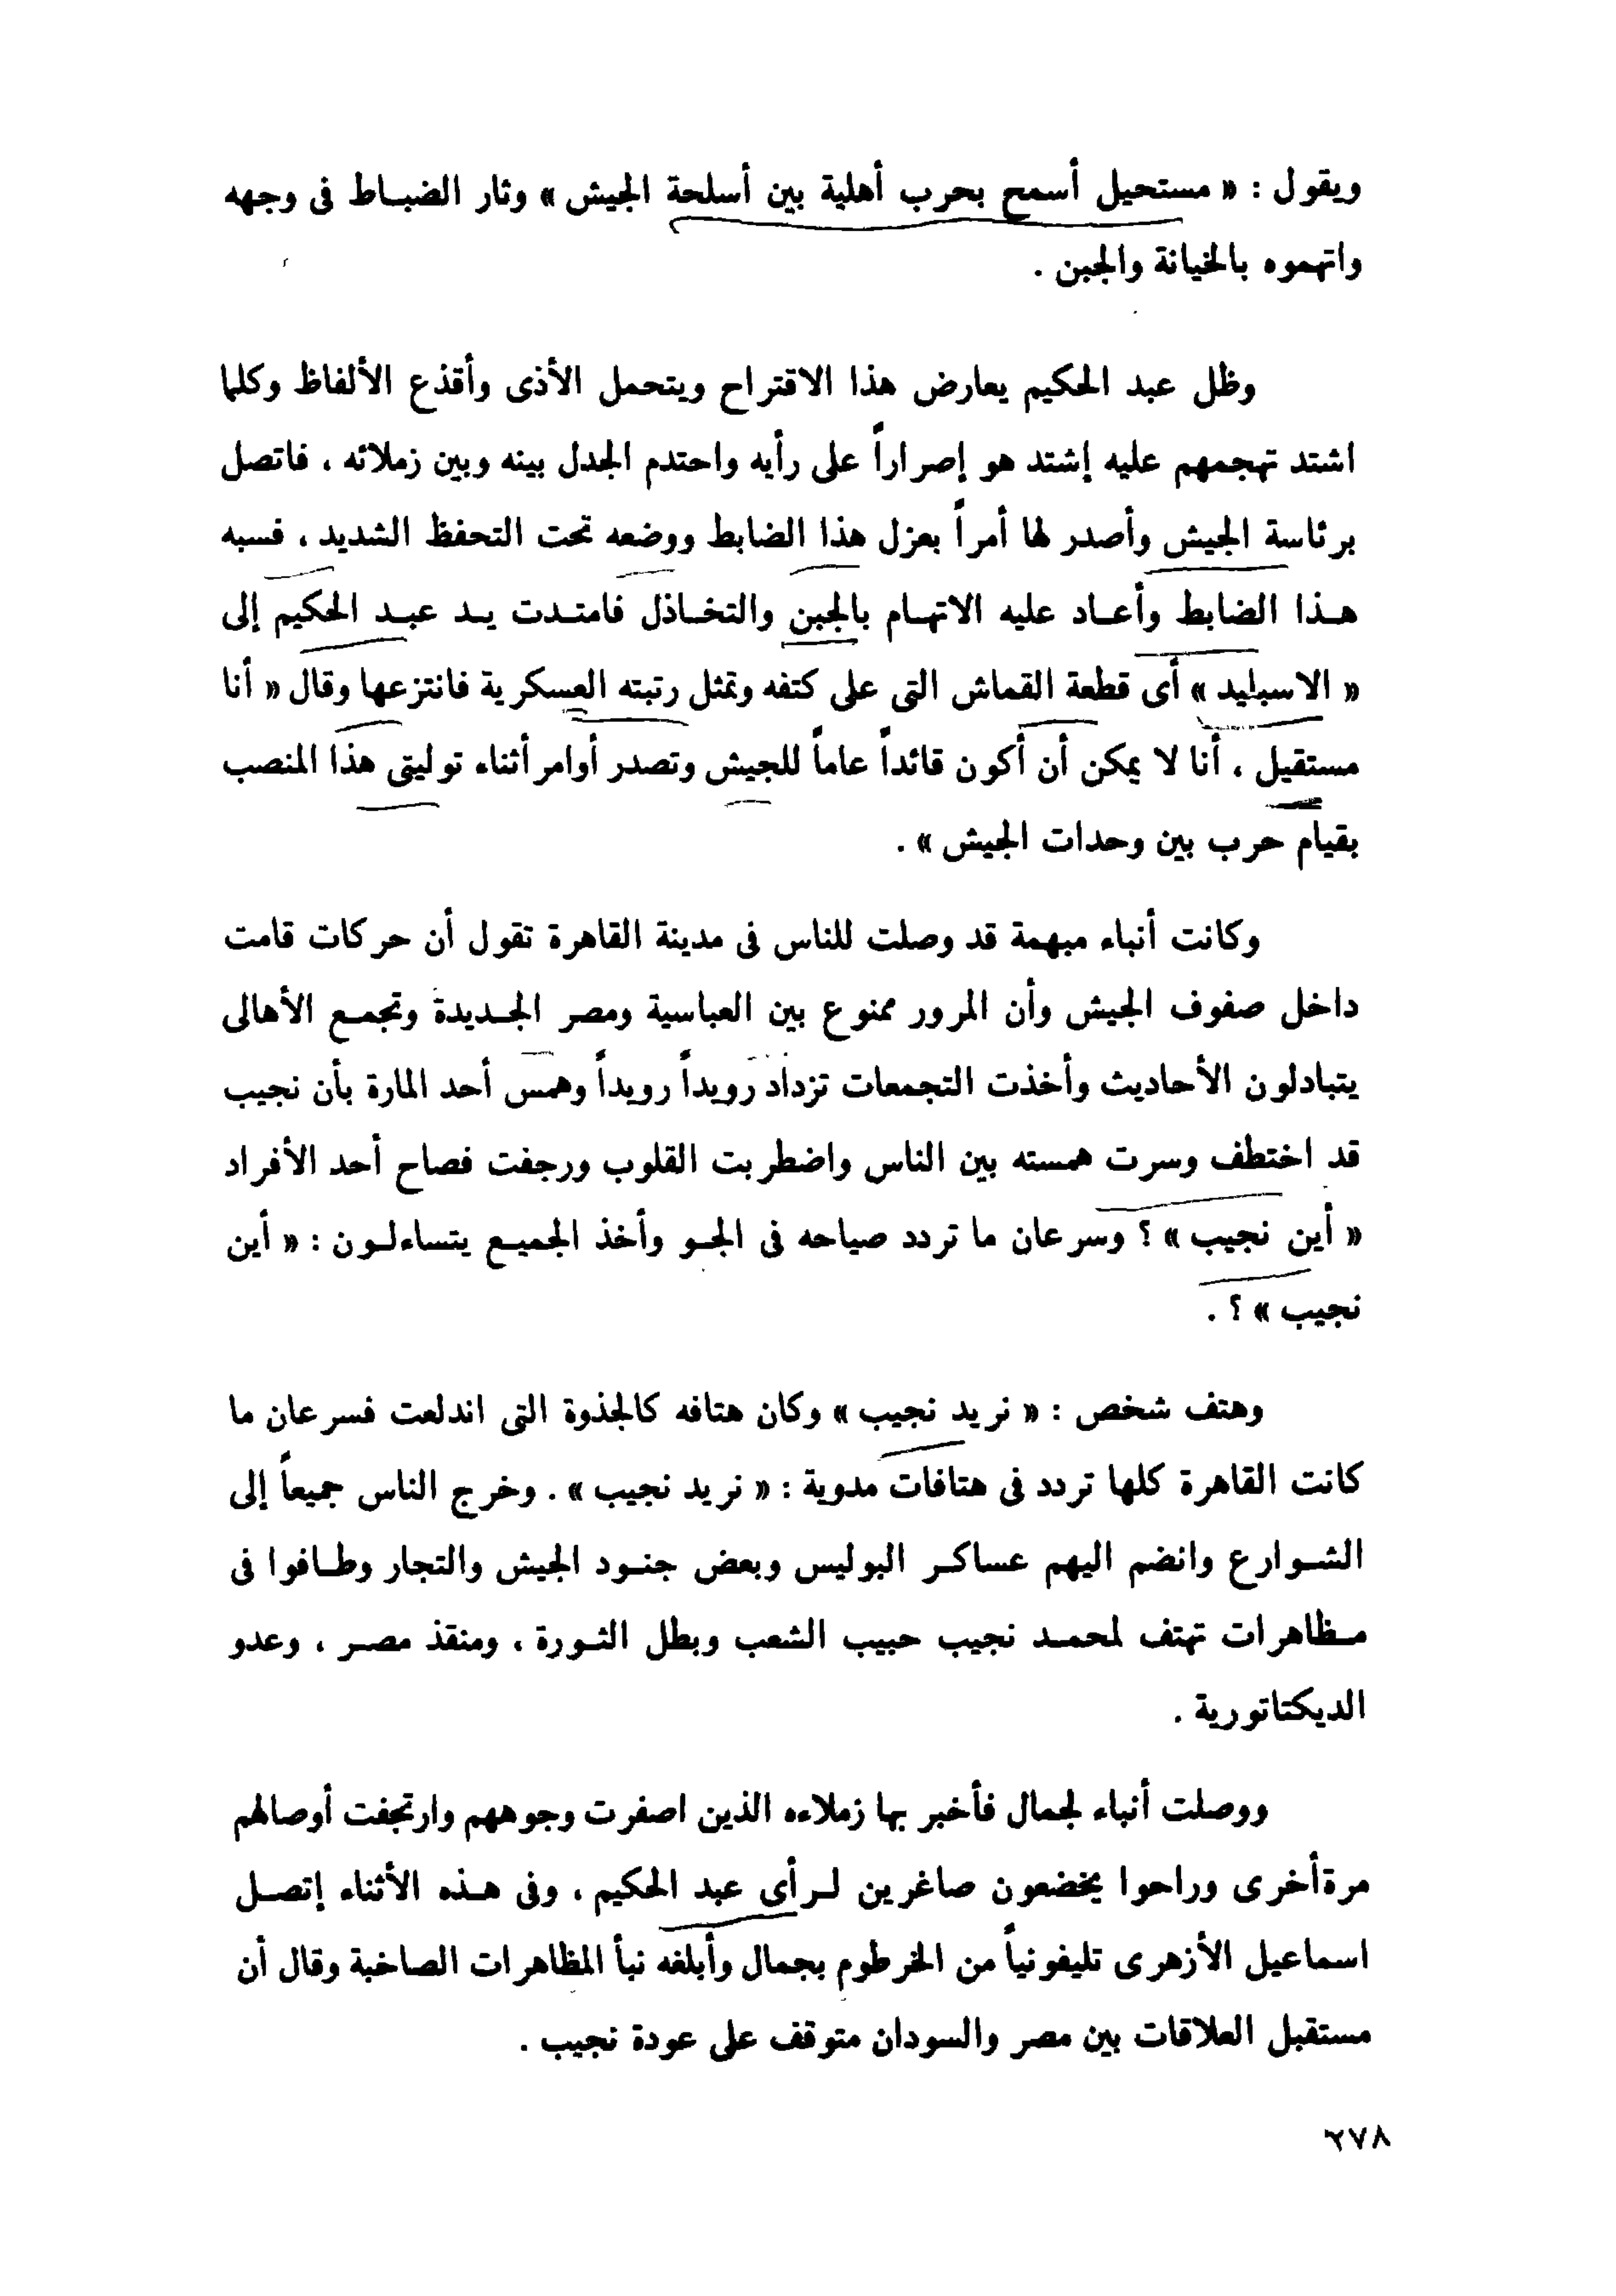 ويقول : « مستحيل أسمح بحرب أهلية بين أسلحة الجيش » وثار الضبـاط فى وجهه
واتهموه بالخيانة والجبن .
وظل عبد الحكيم يعارض هذا الاقتراح ويتحمل الأذى وأقذع الألفاظ وكلما
اشتد تهجمهم عليه إشتد هو إصراراً على رأيه واحتدم الجدل بينه وبين زملائه ، فاتصل
برئاسة الجيش وأصدر لها أمراً بعزل هذا الضابط ووضعه تحت التحفظ الشديد ، فسبه
هـذا الضابط وأعـاد عليه الاتهـام بالجبن والتخـاذل فامتـدت يـد عبـد الحكيم إلى
« الاسبليد » أى قطعة القماش التى على كتفه وتمثل رتبته العسكرية فانتزعها وقال « أنا
مستقيل ، أنا لا يمكن أن أكون قائداً عاماً للجيش وتصدر أوامر أثناء توليتى هذا المنصب
بقيام حرب بين وحدات الجيش » .
وكانت أنباء مبهمة قد وصلت للناس فى مدينة القاهرة تقول أن حركات قامت
داخل صفوف الجيش وأن المرور ممنوع بين العباسية ومصر الجـديدة وتجمـع الأهالى
يتبادلون الأحاديث وأخذت التجمعات تزداد رويداً رويداً وهمس أحد المارة بأن نجيب
قد اختطف وسرت همسته بين الناس واضطربت القلوب ورجفت فصاح أحد الأفراد
« أين نجيب » ؟ وسرعان ما تردد صياحه فى الجـو وأخذ الجميـع يتساءلـون : « أين
نجيب » ؟ .
وهتف شخص : « نريد نجيب » وكان هتافه كالجذوة التى اندلعت فسرعان ما
كانت القاهرة كلها تردد فى هتافات مدوية : « نريد نجيب » . وخرج الناس جميعاً إلى
الشـوارع وانضم اليهم عساكـر البوليس وبعض جنـود الجيش والتجار وطـافوا فى
مـظاهرات تهتف لمحمـد نجيب حبيب الشعب وبطل الثـورة ، ومنقذ مصـر ، وعدو
الديكتاتورية .
ووصلت أنباء لجمال فأخبر بها زملاءه الذين اصفرت وجوههم وارتجفت أوصالهم
مرة أخرى وراحوا يخضعون صاغرين لـرأى عبد الحكيم ، وفى هـذه الأثناء إتصـل
اسماعيل الأزهرى تليفونياً من الخرطوم بجمال وأبلغه نبأ المظاهرات الصاخبة وقال أن
مستقبل العلاقات بين مصر والسودان متوقف على عودة نجيب .
٢٧٨